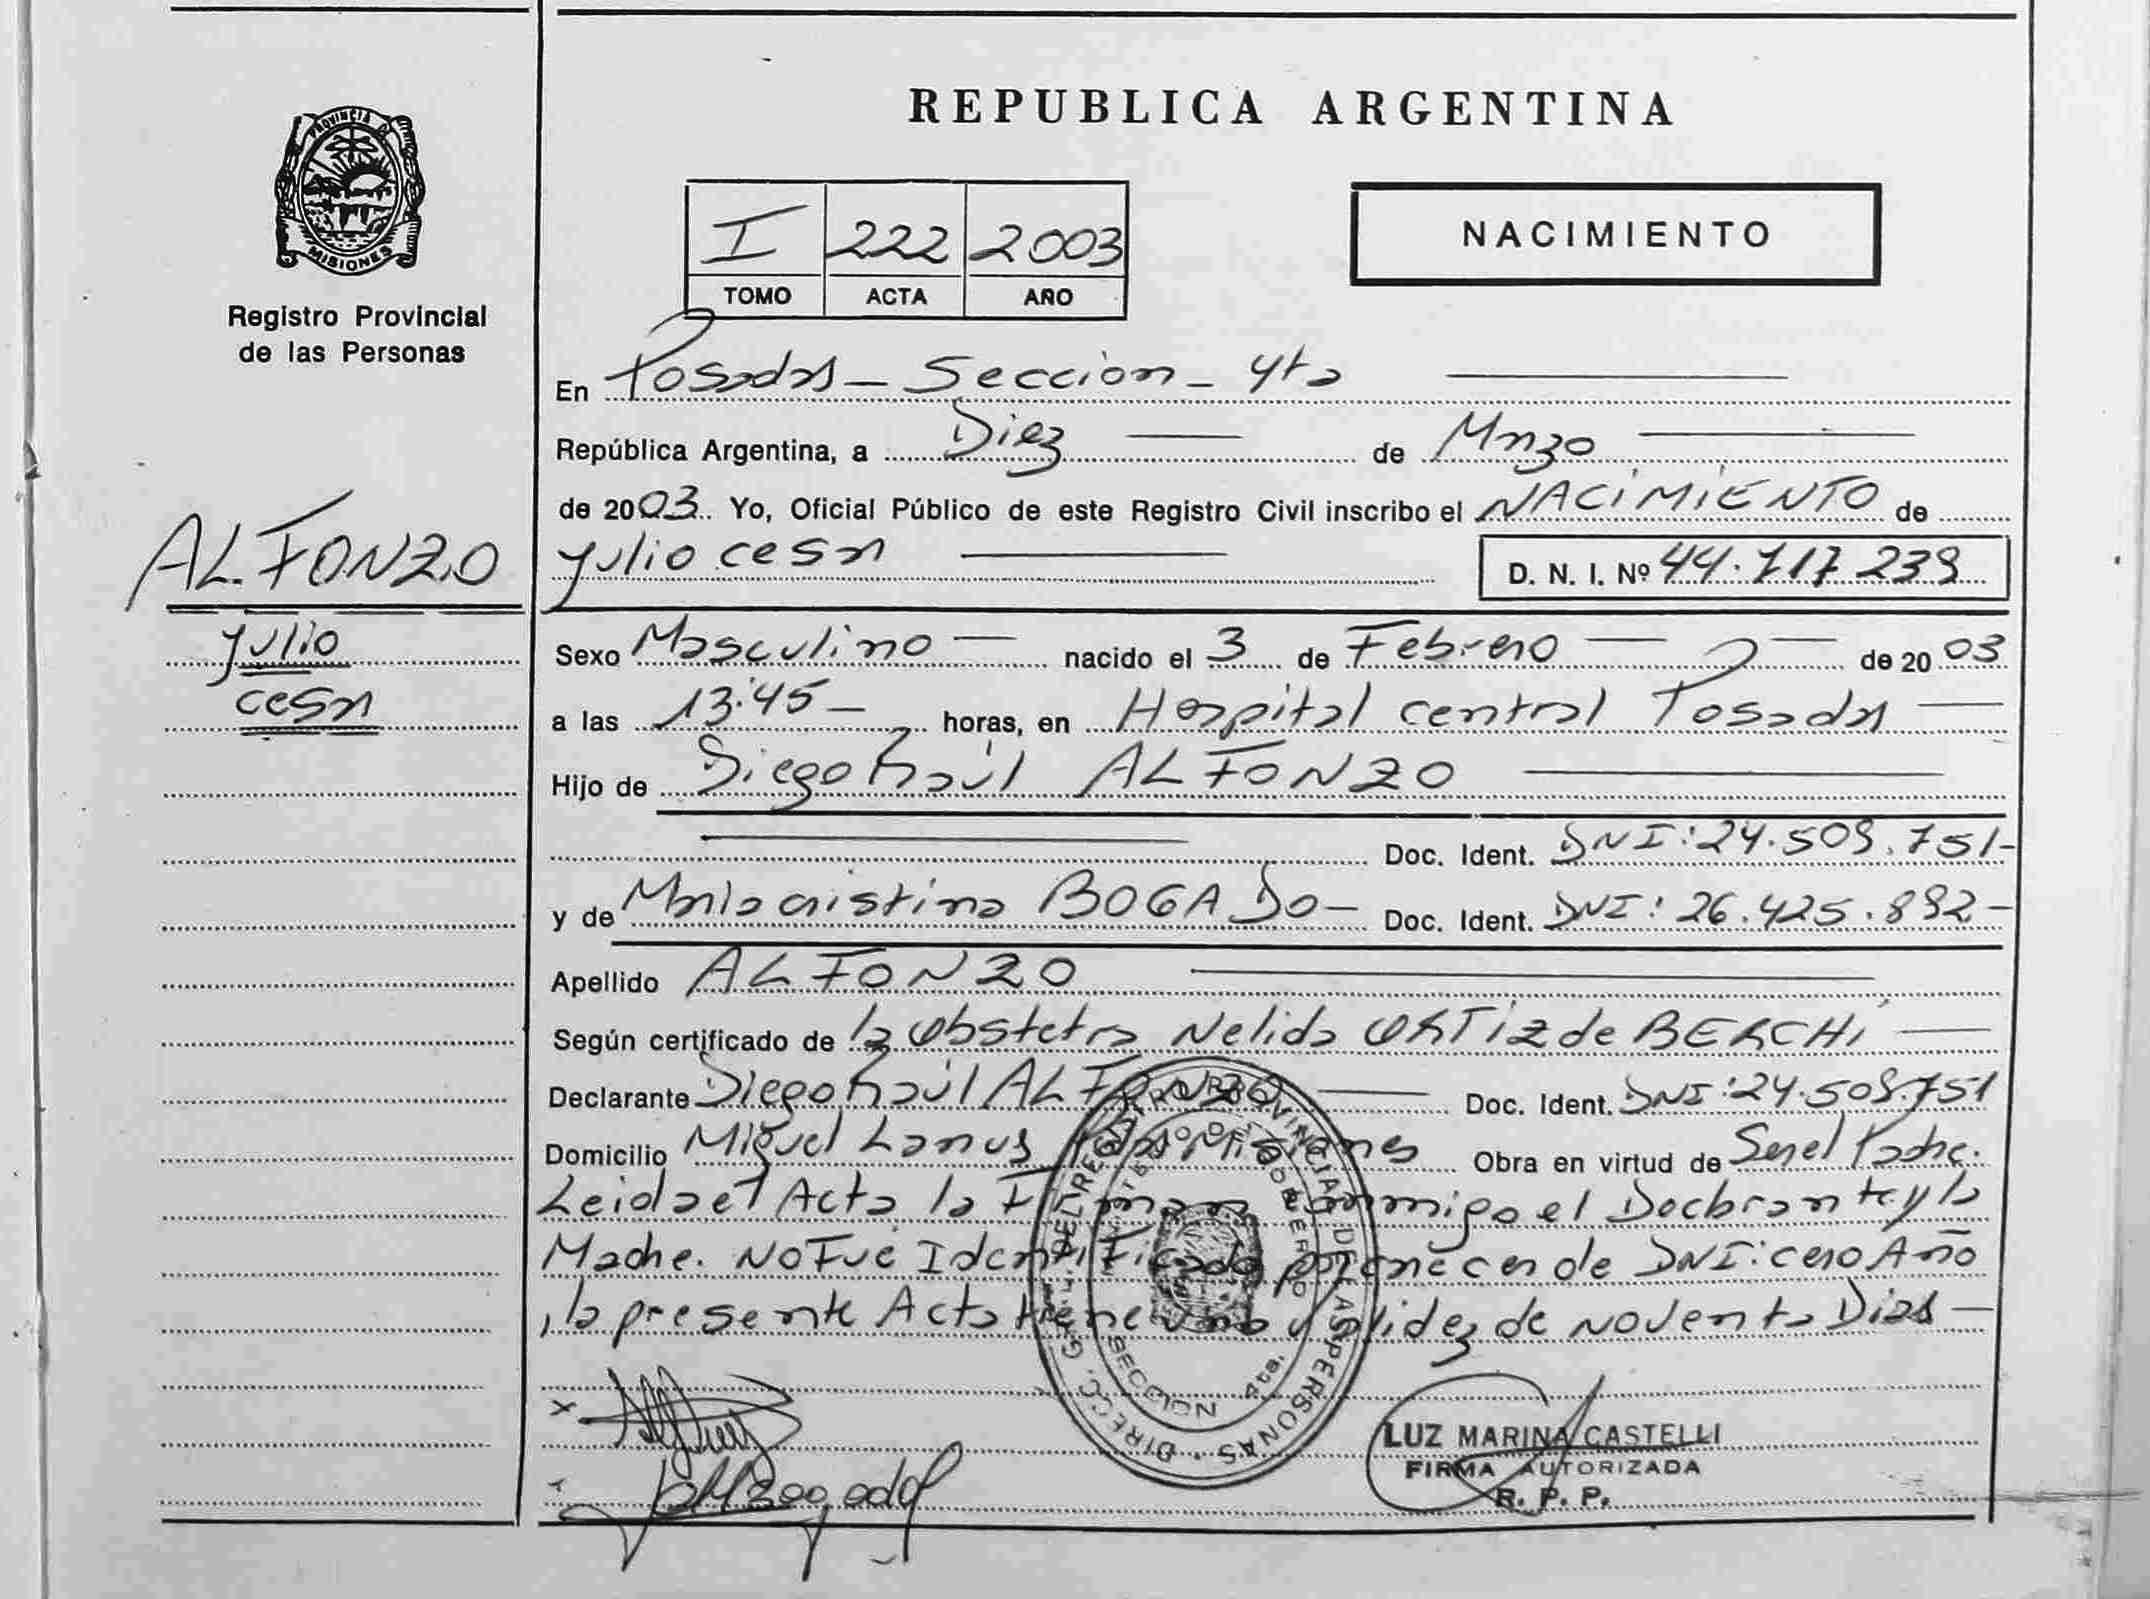 REPUBLICA ARGENTINA
PROVINCIA DE
MISIONES
Registro Provincial
de las Personas
I 222 2003
TOMO ACTA AÑO
NACIMIENTO
En Posadas - Seccion - 4ta
República Argentina, a Diez de Marzo
de 2003. Yo, Oficial Público de este Registro Civil inscribo el NACIMIENTO de
Julio cesar D. N. I. Nº 44.717.239
ALFONZO
Julio
cesar
Sexo Masculino nacido el 3 de Febrero de 2003
a las 13:45 horas, en Hospital central Posadas
Hijo de Diego Raúl ALFONZO
Doc. Ident. DNI: 24.509.751-
y de Maria cristina BOGADO - Doc. Ident. DNI: 26.425.892-
Apellido ALFONZO
Según certificado de la Obstetra Nelida ORTIZ de BERCHI
Declarante Diego Raúl ALFONZO Doc. Ident. DNI: 24.509.751
Domicilio Miguel Lanus Pdas Misiones Obra en virtud de Ser el Padre.
Leida el Acta la Firman conmigo el Declarante y la
Madre. NO Fue Identificada por carecer de DNI: cero Año
, la presente Acta tiene una validez de noventa Dias -
DIRECC. GRAL. DEL REGISTRO PROVINCIAL DE LAS PERSONAS
MINISTERIO DE GOBIERNO
SECCION 4ta.
LUZ MARINA CASTELLI
FIRMA AUTORIZADA
R. P. P.